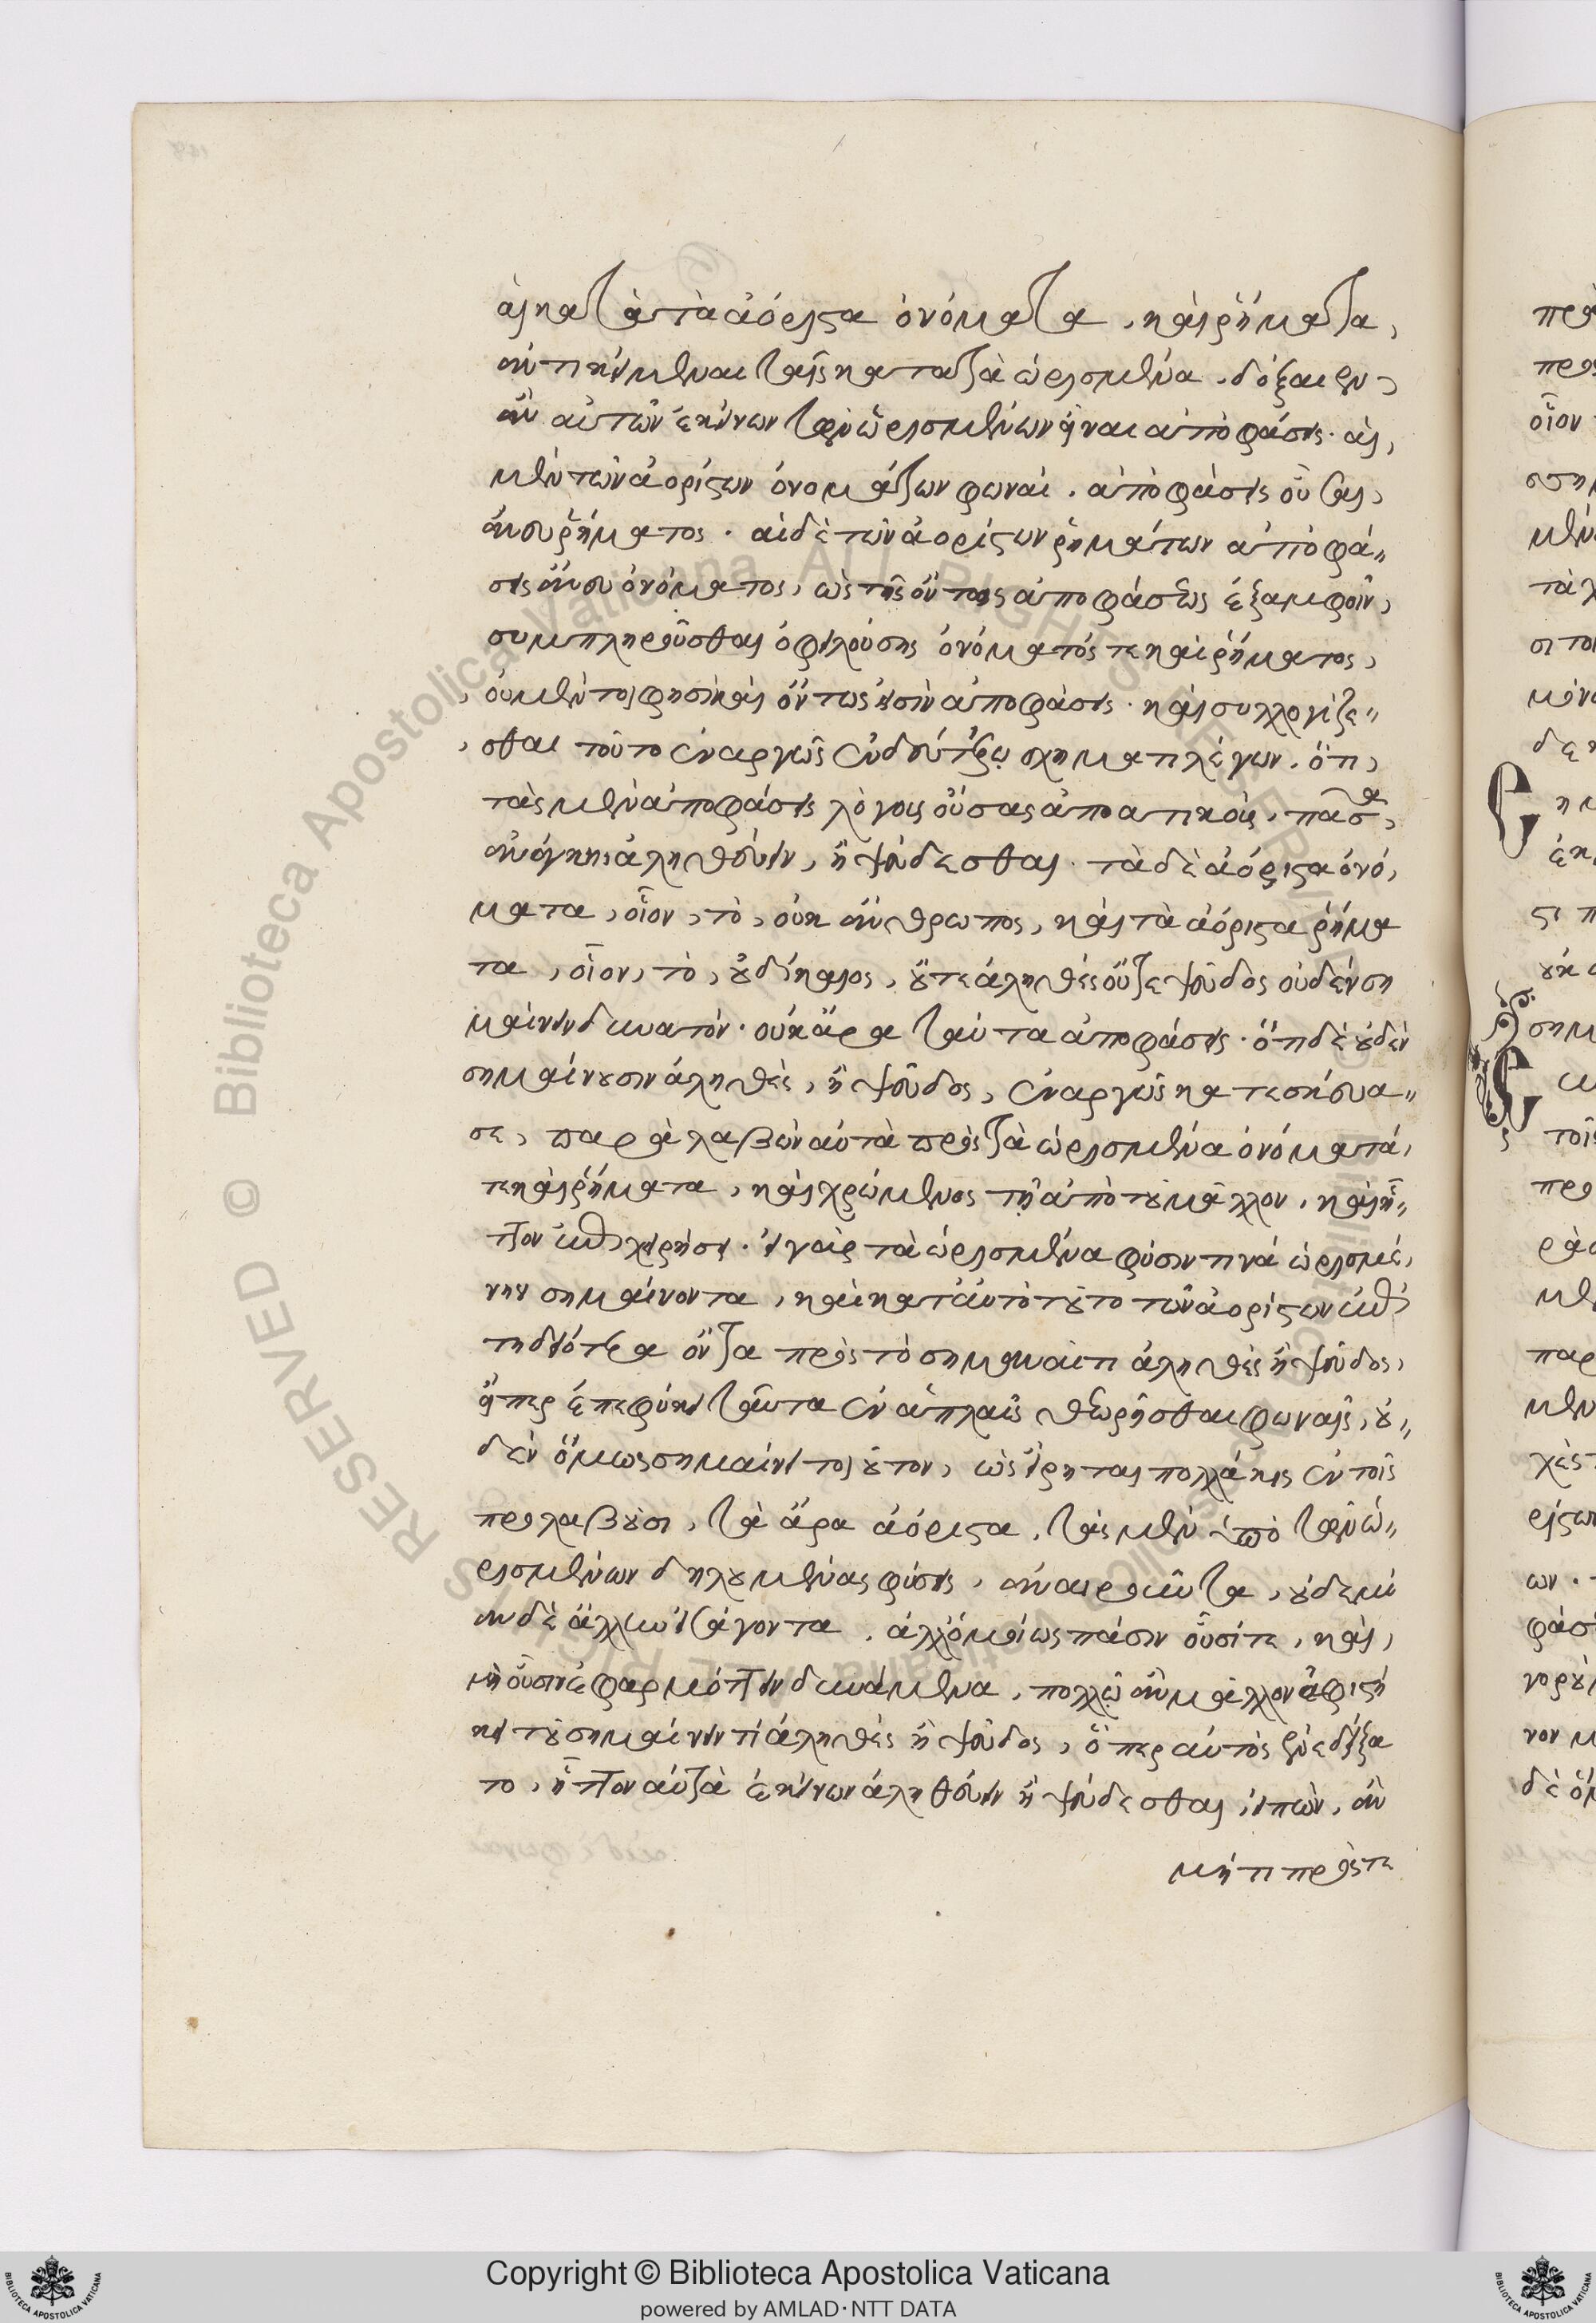 αἱ κατὰ τὰ ἀόριστα ὀνόματα, καὶ ῥήματα,
ἀντικείμεναι ταῖς κατὰ τὰ ὡρισμένα. δόξαιεν
ἂν αὐτῶν ἐκείνων τῶν ὡρισμένων εἶναι ἀποφάσεις. αἱ
μὲν τῶν ἀορίστων ὀνομάτων φωναὶ. ἀποφάσεις οὖσαι,
ἄνευ ῥήματος. αἱ δὲ τῶν ἀορίστων ῥημάτων ἀποφά-
σεις ἄνευ ὀνόματος, ὡς τῆς ὄντως ἀποφάσεως ἐξ ἀμφοῖν,
συμπληροῦσθαι ὀφειλούσης ὀνόματός τε καὶ ῥήματος,
οὐ μέντοι φησὶ καὶ ὄντως εἰσὶν ἀποφάσεις. καὶ συλλογίζε-
σθαι τοῦτο ἐναργῶς ἐν δευτέρῳ σχήματι λέγων. ὅτι,
τὰς μὲν ἀποφάσεις λόγους οὔσας ἀποφατικοὺς, πᾶσα
ἀνάγκη, ἀληθεύειν, ἢ ψεύδεσθαι. τὰ δὲ ἀόριστα ὀνό,
ματα, οἷον, τὸ, οὐκ ἄνθρωπος, καὶ τὰ ἀόριστα ῥήμα
τα, οἷον, τὸ, οὐ δίκαιος, οὔτε ἀληθὲς οὔτε ψεῦδος οὐδὲν ση
μαίνειν δυνατόν. οὐκ ἄρα ταῦτα ἀποφάσεις. ὅτι δὲ οὐδὲν
σημαίνουσιν ἀληθὲς, ἢ ψεῦδος, ἐναργῶς κατεσκεύα-
σε, παραλαβὼν αὐτὰ πρὸς τὰ ὡρισμένα ὀνόματά,
τε καὶ ῥήματα, καὶ χρώμενος τῇ ἀπὸ τοῦ μᾶλλον, καὶ ἧ-
ττον ἐπιχειρήσει. εἰ γὰρ τὰ ὡρισμένα φύσιν τινὰ ὡρισμέ,
νην σημαίνοντα, καὶ κατ' αὐτὸ τοῦτο τῶν ἀορίστων ἐπι
τηδειότερα ὄντα πρὸς τὸ σημῆναί τι ἀληθὲς ἢ ψεῦδος,
εἴπερ ἐπεφύκει ταῦτα ἐν ἁπλαῖς θεωρεῖσθαι φωναῖς, οὐ-
δὲν ὅμως σημαίνει τοιοῦτον, ὡς εἴρηται πολλάκις ἐν τοῖς
προλαβοῦσι, τὰ ἄρα ἀόριστα, τὰς μὲν ὑπὸ τῶν ὡ-
ρισμένων δηλουμένας φύσεις, ἀναιροῦντα, οὐδεμί
αν δὲ ἄλλην εἰσάγοντα, ἀλλ' ὁμοίως πᾶσιν οὖσί τε, καὶ,
μὴ οὖσιν ἐφαρμόττειν δυνάμενα, πολλῷ ἂν μᾶλλον ἀφιστή
κει τοῦ σημαίνειν τι ἀληθὲς ἢ ψεῦδος, ὅπερ αὐτὸς ἐνεδείξα
το, ἧττον αὐτὰ ἐκείνων ἀληθεύειν ἢ ψεύδεσθαι, εἰπὼν, ἂν
μή τι προστε
Copyright © Biblioteca Apostolica Vaticana
powered by AMLAD·NTT DATA